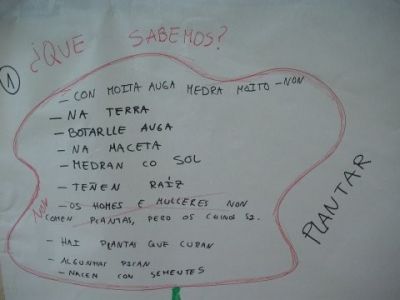 ¿QUE SABEMOS?
1
- CON MOITA AUGA MEDRA MOITO - NON
- NA TERRA
- BOTARLLE AUGA
- NA MACETA
- MEDRAN CO SOL
- TEÑEN RAÍZ
- OS HOMES E MULLERES NON
COMEN PLANTAS, PERO OS CHINOS SI.
- HAI PLANTAS QUE CURAN
- ALGUNHAS PICAN
- NACEN CON SEMENTES
PLANTAR